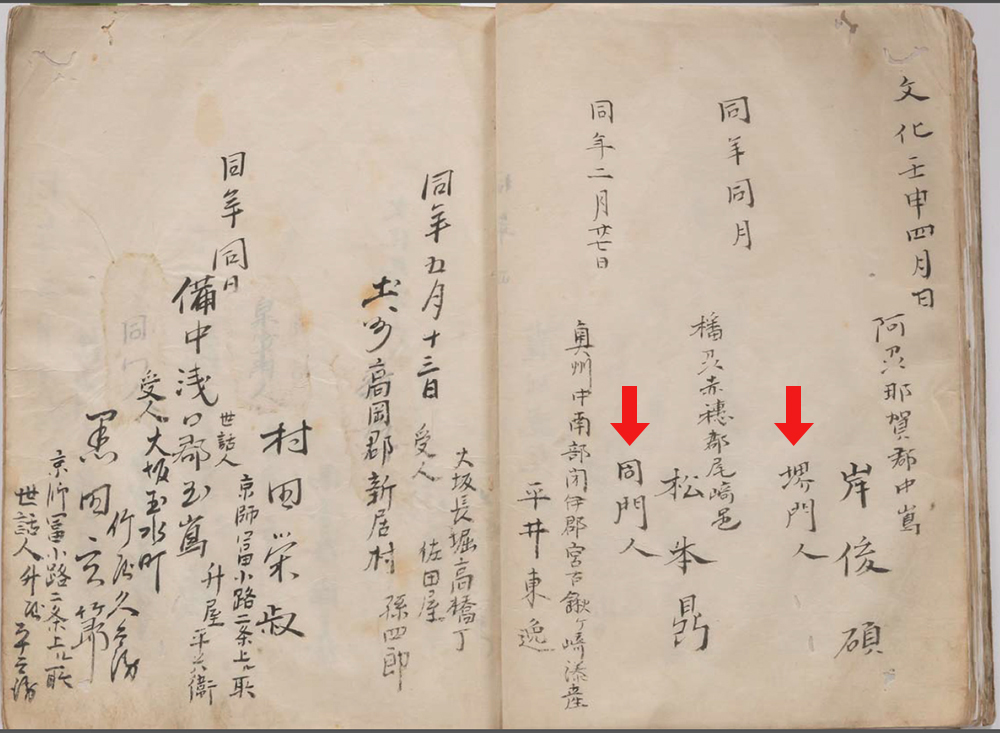 文化壬申四月日
阿州那賀郡中嶌
岸俊碩
堺門人
同年同月
播州赤穗郡尾崎邑
松本鼎
同門人
同年二月廿七日
奥州中南部閉伊郡宮古鍬ヶ崎添産
平井東逸
同年五月十三日
土州高岡郡新居村
受人
大坂長堀高橋丁
佐田屋
孫四郎
同年同日
備中浅口郡玉嶌
村田栄叔
世話人
京師冨小路二条上ル町
升屋平兵衛
受人大坂玉水町
竹屋久兵衛
黒田玄簫
京師冨小路二条上ル町
世話人升屋平兵衛